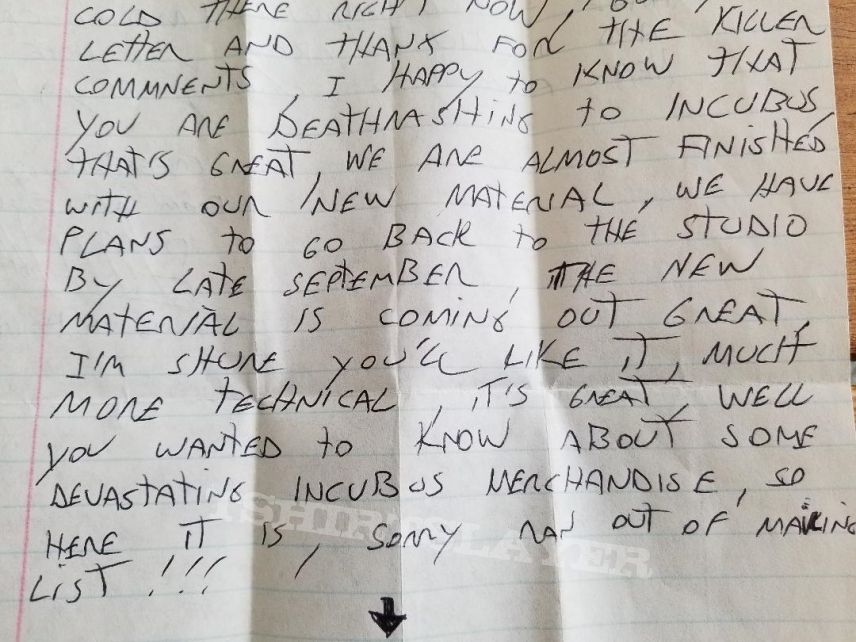 COLD THERE RIGHT NOW,
LETTER AND THANX FOR THE KILLER
COMMNENTS, I HAPPY to KNOW THAT
YOU ARE DEATHRASHING to INCUBUS,
THAT'S GREAT, WE ARE ALMOST FINISHED
WITH OUR NEW MATERIAL, WE HAVE
PLANS to GO BACK to THE STUDIO
BY LATE SEPTEMBER, THE NEW
MATERIAL IS COMING OUT GREAT,
I'M SHURE YOU'LL LIKE IT, MUCH
MORE TECHNICAL, IT'S GREAT, WELL
YOU WANTED to KNOW ABOUT SOME
DEVASTATING INCUBUS MERCHANDISE, SO
HERE IT IS, SORRY RAN OUT OF MAILING
LIST!!!
TSHIRTSLAYER